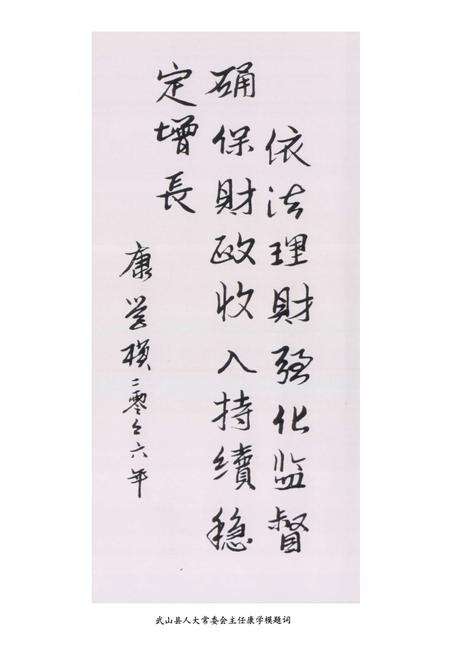 依法理財强化监督
确保財政收入持續穩
定增長
康学模二零零六年
武山县人大常委会主任康学模题词